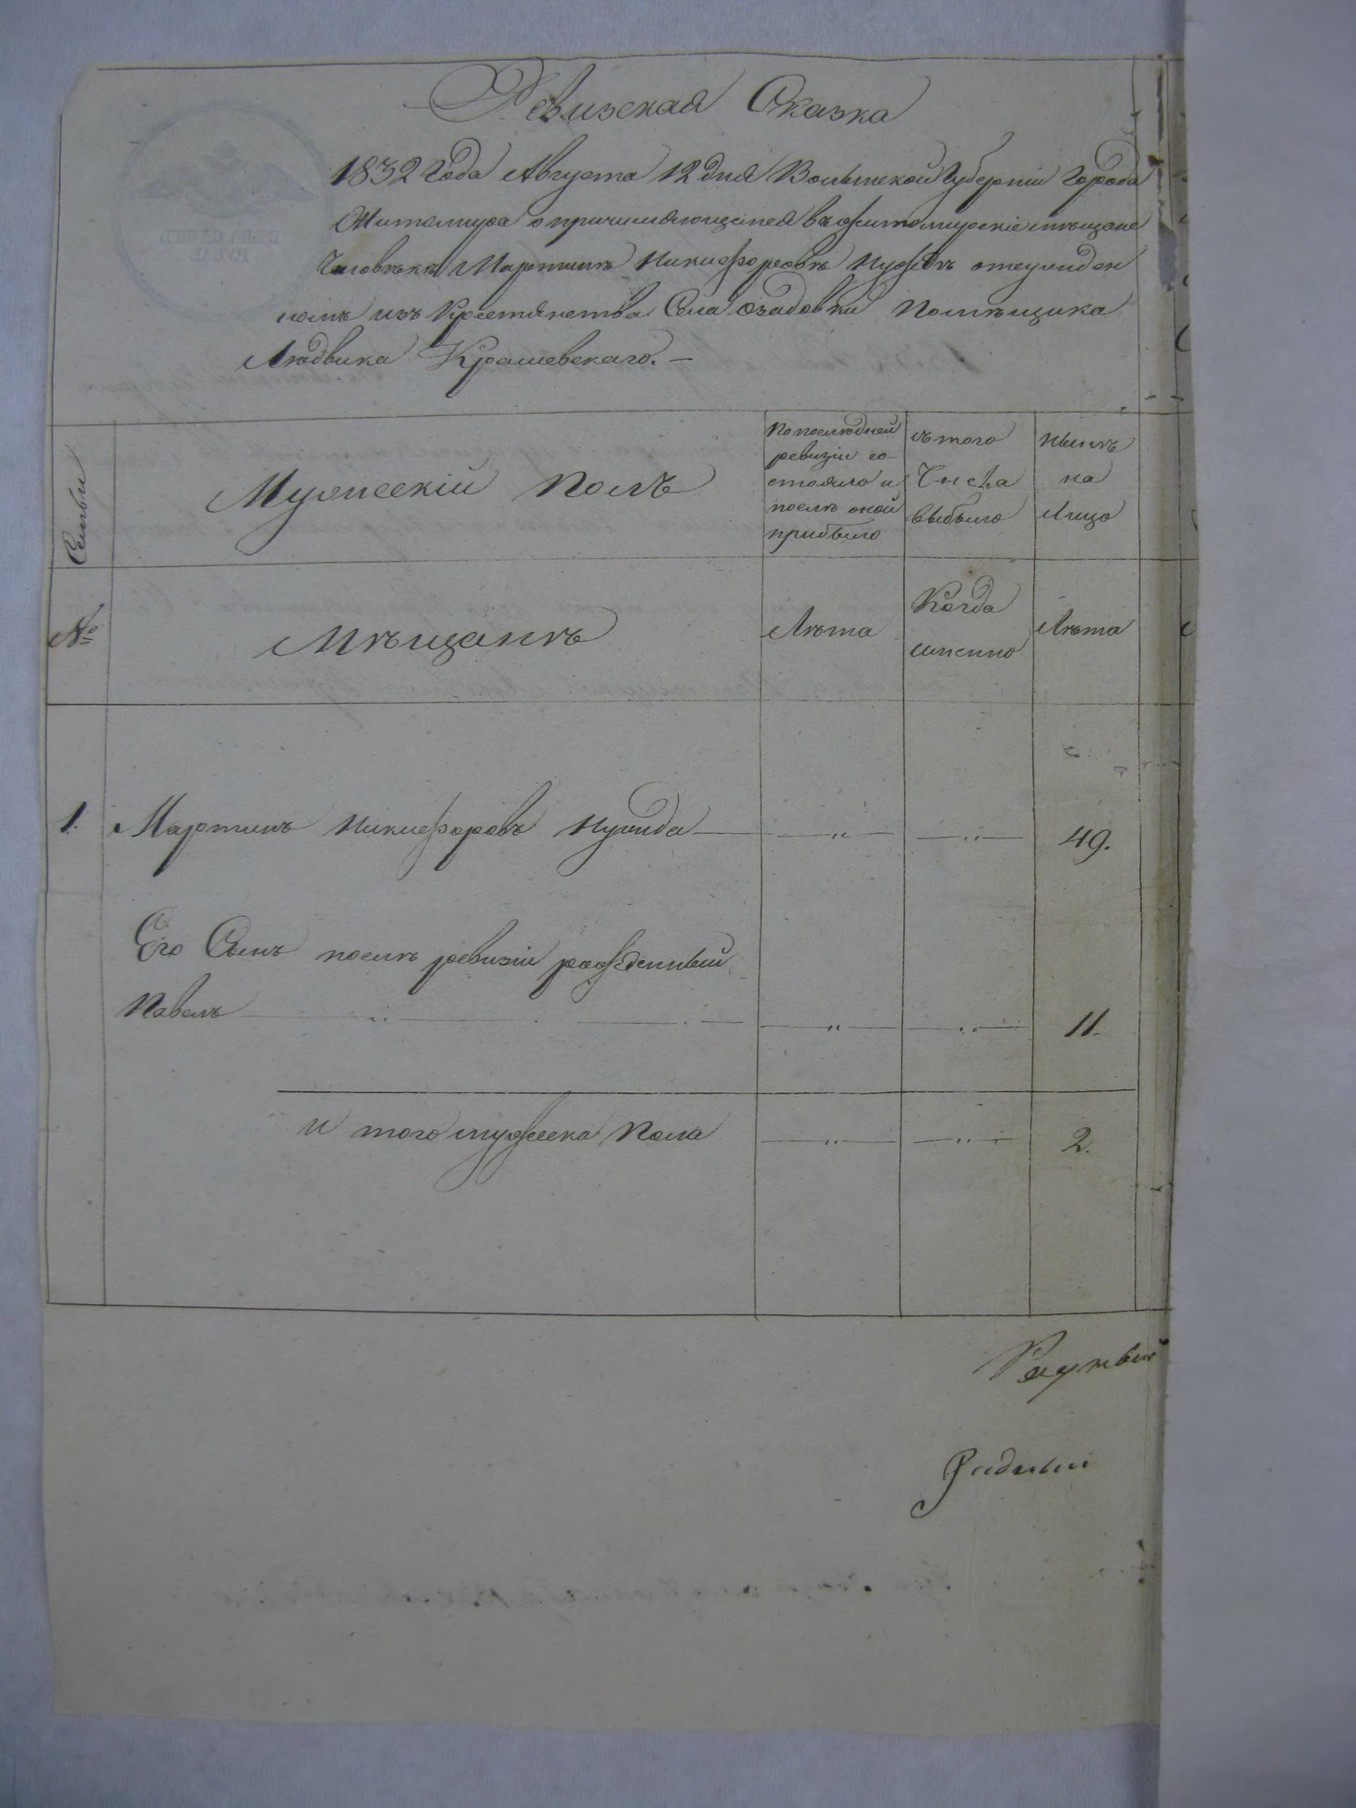 Ревизская Сказка
1832 Года Августа 12 дня Волынской Губерніи Города
Житомира о причисляющемся въ житомирскіе мѣщане
Человѣкѣ Мартинѣ Никифоровѣ отсужден
номъ изъ Крестянства Села Озадовки Помѣщика
Людвика Крашевскаго. —
Семьи
Мужескій полъ
По последней
ревизіи со-
стояло и
послѣ оной
прибыло
съ того
Числа
выбыло
нынѣ
на
Лицо
№
Мѣщанъ
Лѣта
Когда
именно
Лѣта
1. Мартинъ Никифоровъ 49.
Его Сынъ послѣ ревизіи рожденный
Павелъ 11.
и того мужеска Пола 2.